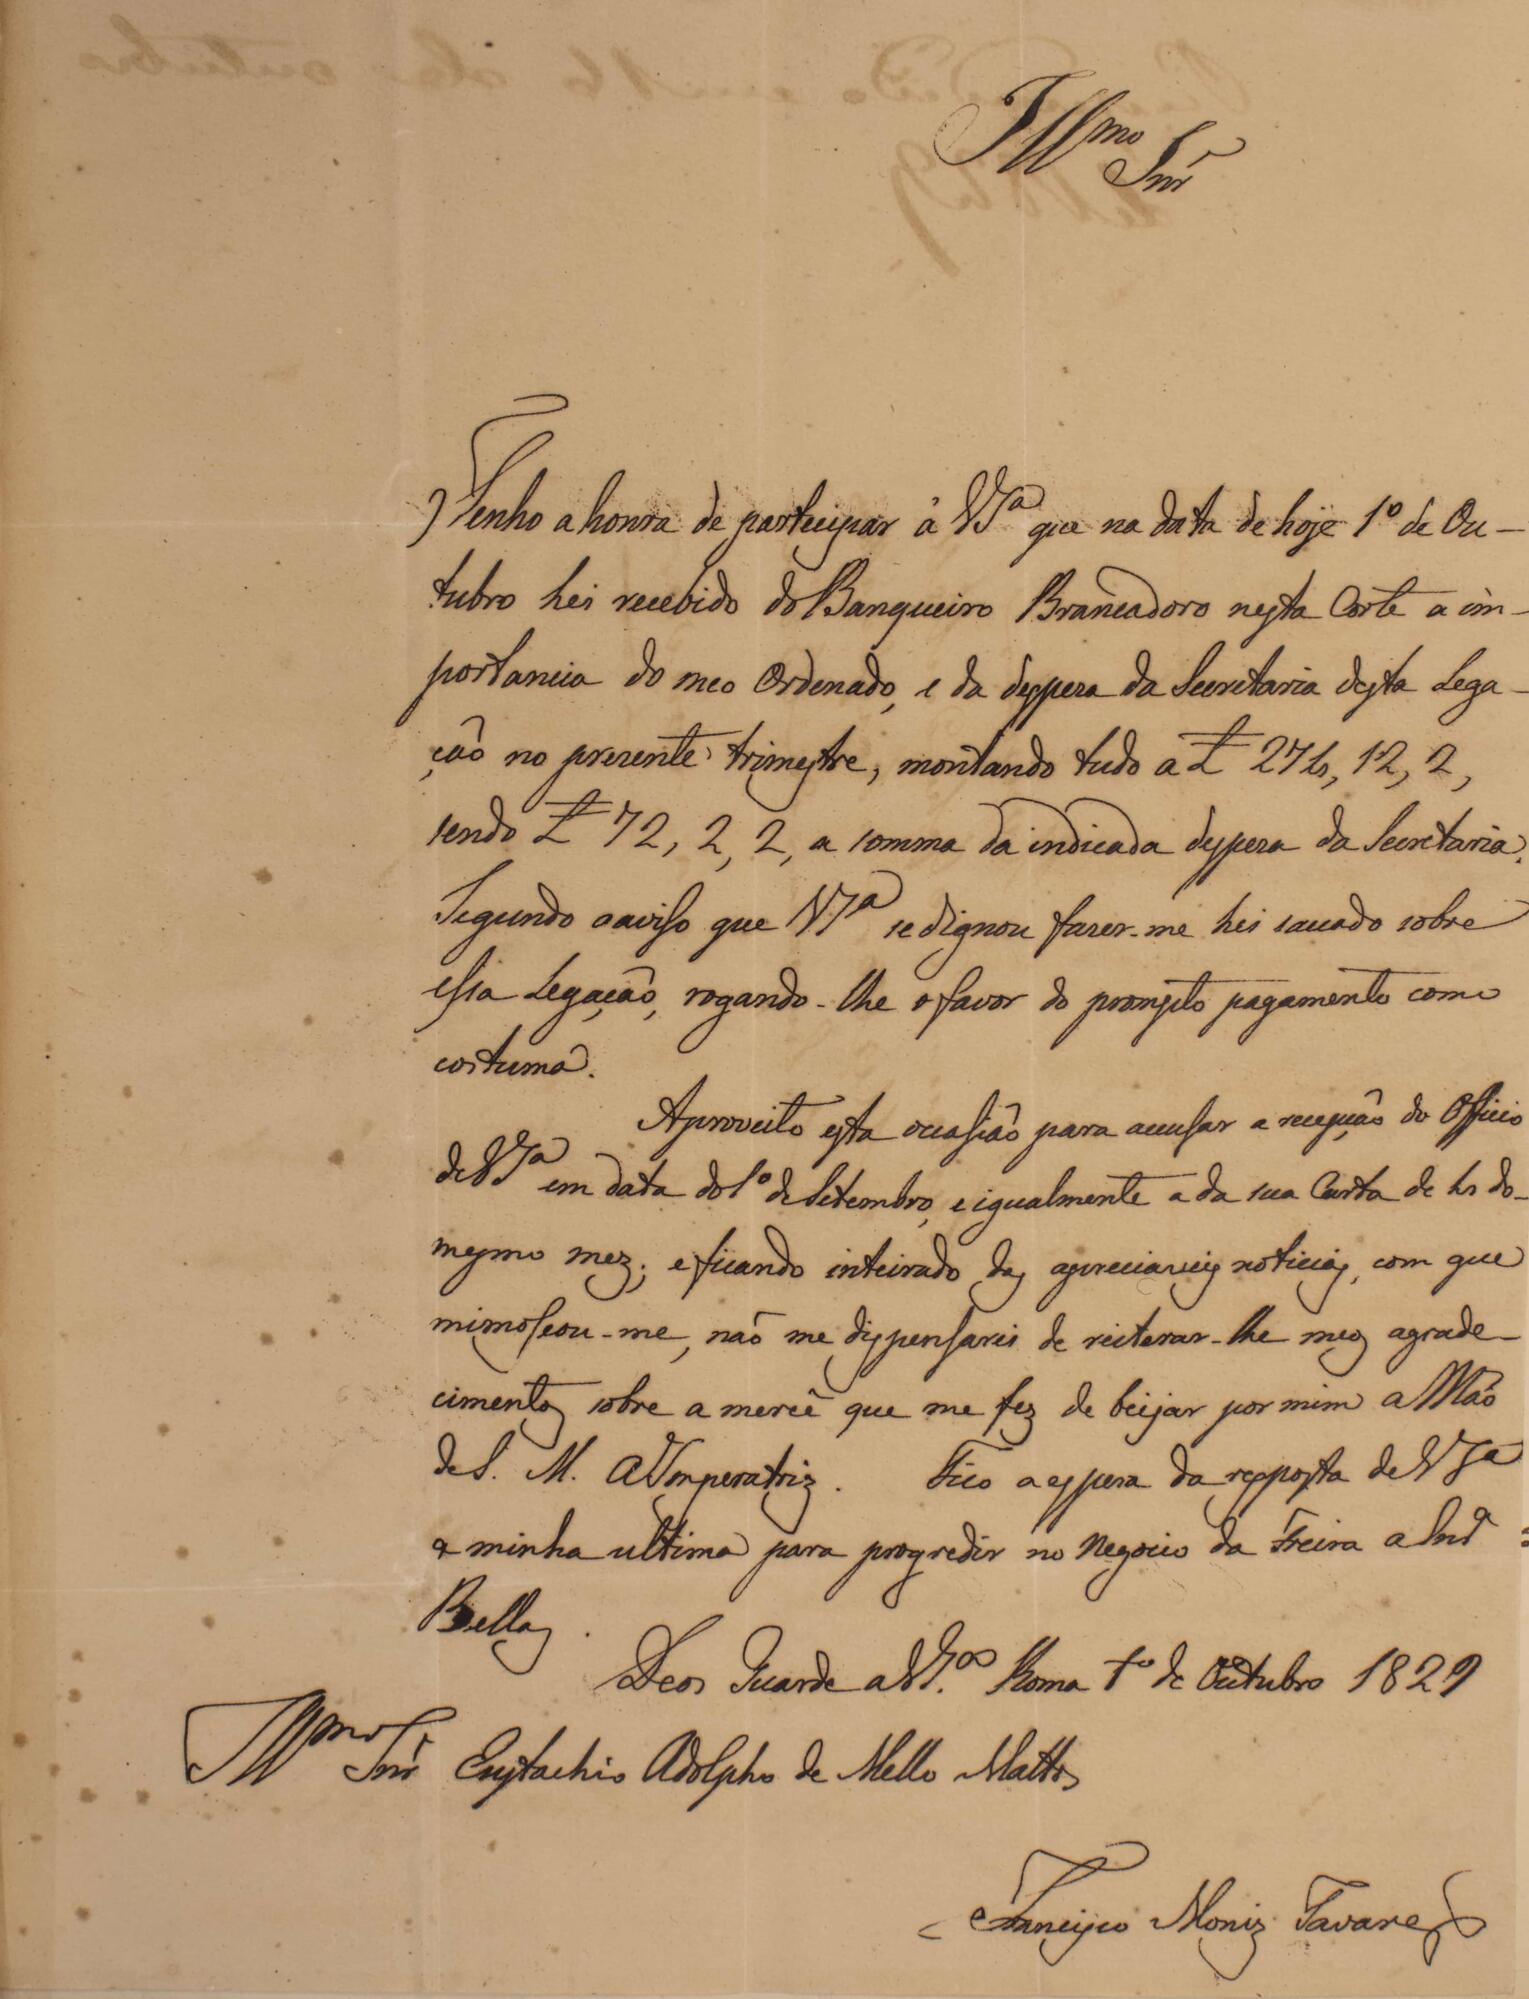 Illmo Snr
Tenho a honra de partecipar á VSa que na data de hoje 1º de Ou-
tubro hei recebido do Banqueiro Brancadoro nesta Corte a im-
portancia do meo Ordenado, e da despeza da Secretaria desta Lega-
ção no prezente trimestre, montando tudo a £ 274, 12, 2,
sendo £ 72, 2, 2, a somma da indicada despeza da Secretaria.
Segundo o aviso que VSa se dignou fazer-me hei sacado sobre
essa Legação, rogando-lhe o favor do prompto pagamento como
costuma.
Aproveito esta occasião para accusar a recepção do Officio
de VSa em data do 1º de Setembro, e igualmente a da sua Carta de 4 do-
mesmo mez; e ficando inteirado das apreciaveis noticias, com que
mimoseou-me, não me dispensarei de reiterar-lhe meos agrade-
cimentos sobre a mercê que me fez de beijar por mim a Mão
de S. M. A Imperatriz. Fico a espera da resposta de VSa
a minha ultima para progredir no Negocio da Freira a Snrª
Bellas.
Deos Guarde a VS.as Roma 1º de Outubro 1829
Illmo Snr Eustachio Adolpho de Mello Mattos
Francisco Moniz Tavares